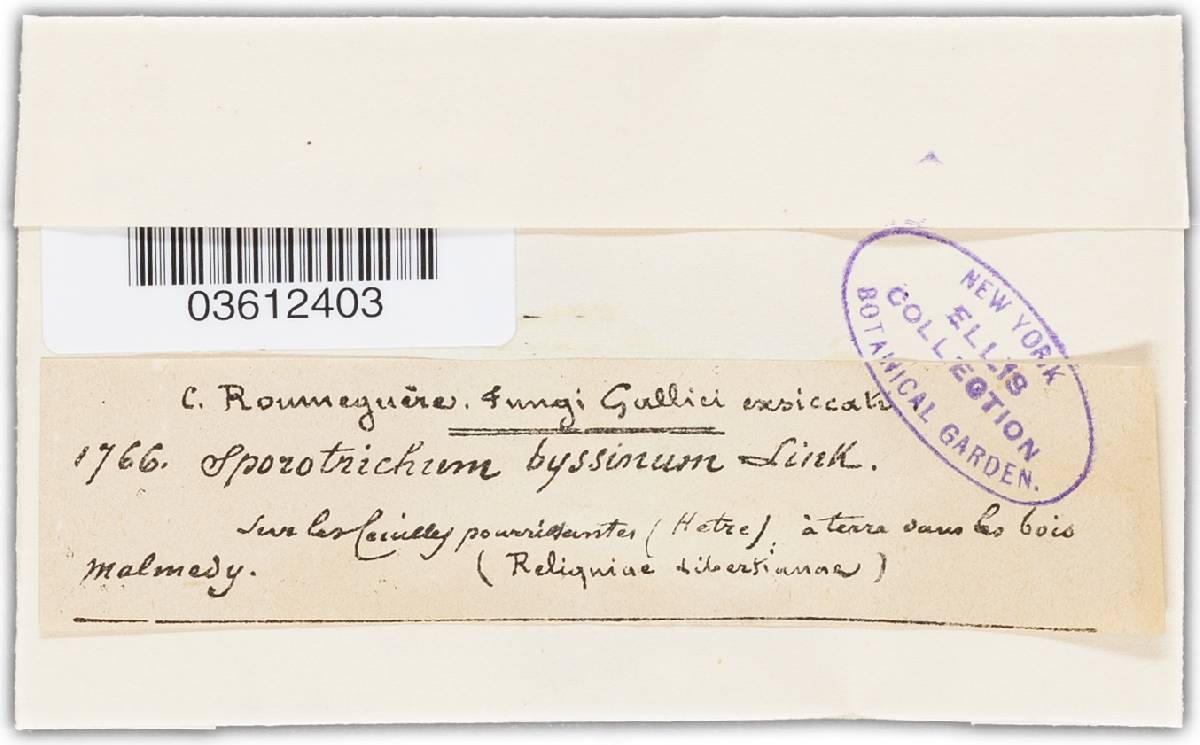 03612403
NEW YORK
ELLIS
COLLECTION
BOTANICAL GARDEN.
C. Roumeguère. Fungi Gallici exsiccati.
1766. Sporotrichum byssinum Link.
Sur les feuilles pourrissantes (Hetre), à terre dans les bois
Malmedy. (Reliquiae Libertianae)